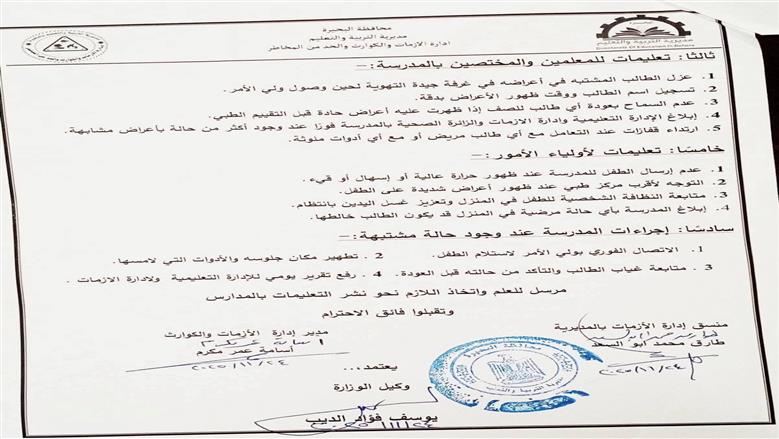 محافظة البحيرة
مديرية التربية والتعليم
ادارة الازمات والكوارث والحد من المخاطر
مديرية التربية والتعليم
Directorate of Education in Behera
ثالثًا: تعليمات للمعلمين والمختصين بالمدرسة:–
1. عزل الطالب المشتبه في أعراضه في غرفة جيدة التهوية لحين وصول ولي الأمر.
2. تسجيل اسم الطالب ووقت ظهور الأعراض بدقة.
3. عدم السماح بعودة أي طالب للصف إذا ظهرت عليه أعراض حادة قبل التقييم الطبي.
4. إبلاغ الإدارة التعليمية وإدارة الازمات والزائرة الصحية بالمدرسة فورًا عند وجود أكثر من حالة بأعراض مشابهة.
5. ارتداء قفازات عند التعامل مع أي طالب مريض أو مع أي أدوات ملوثة.
خامسًا: تعليمات لأولياء الأمور:–
1. عدم إرسال الطفل للمدرسة عند ظهور حرارة عالية أو إسهال أو قيء.
2. التوجه لأقرب مركز طبي عند ظهور أعراض شديدة على الطفل.
3. متابعة النظافة الشخصية للطفل في المنزل وتعزيز غسل اليدين بانتظام.
4. إبلاغ المدرسة بأي حالة مرضية في المنزل قد يكون الطالب خالطها.
سادسًا: إجراءات المدرسة عند وجود حالة مشتبهة:–
1. الاتصال الفوري بولي الأمر لاستلام الطفل. 2. تطهير مكان جلوسه والأدوات التي لامسها.
3. متابعة غياب الطالب والتأكد من حالته قبل العودة. 4. رفع تقرير يومي للإدارة التعليمية ولادارة الازمات .
مرسل للعلم واتخاذ اللازم نحو نشر التعليمات بالمدارس
وتقبلوا فائق الاحترام
منسق إدارة الأزمات بالمديرية
طارق محمد ابو السعد
٢٠٢٥/١١/٢٤
مدير إدارة الأزمات والكوارث
أسامة عمر مكرم
٢٠٢٥/١١/٢٤
محافظة البحيرة
مديرية التربية والتعليم
يعتمد...
وكيل الوزارة
يوسف فؤاد الديب